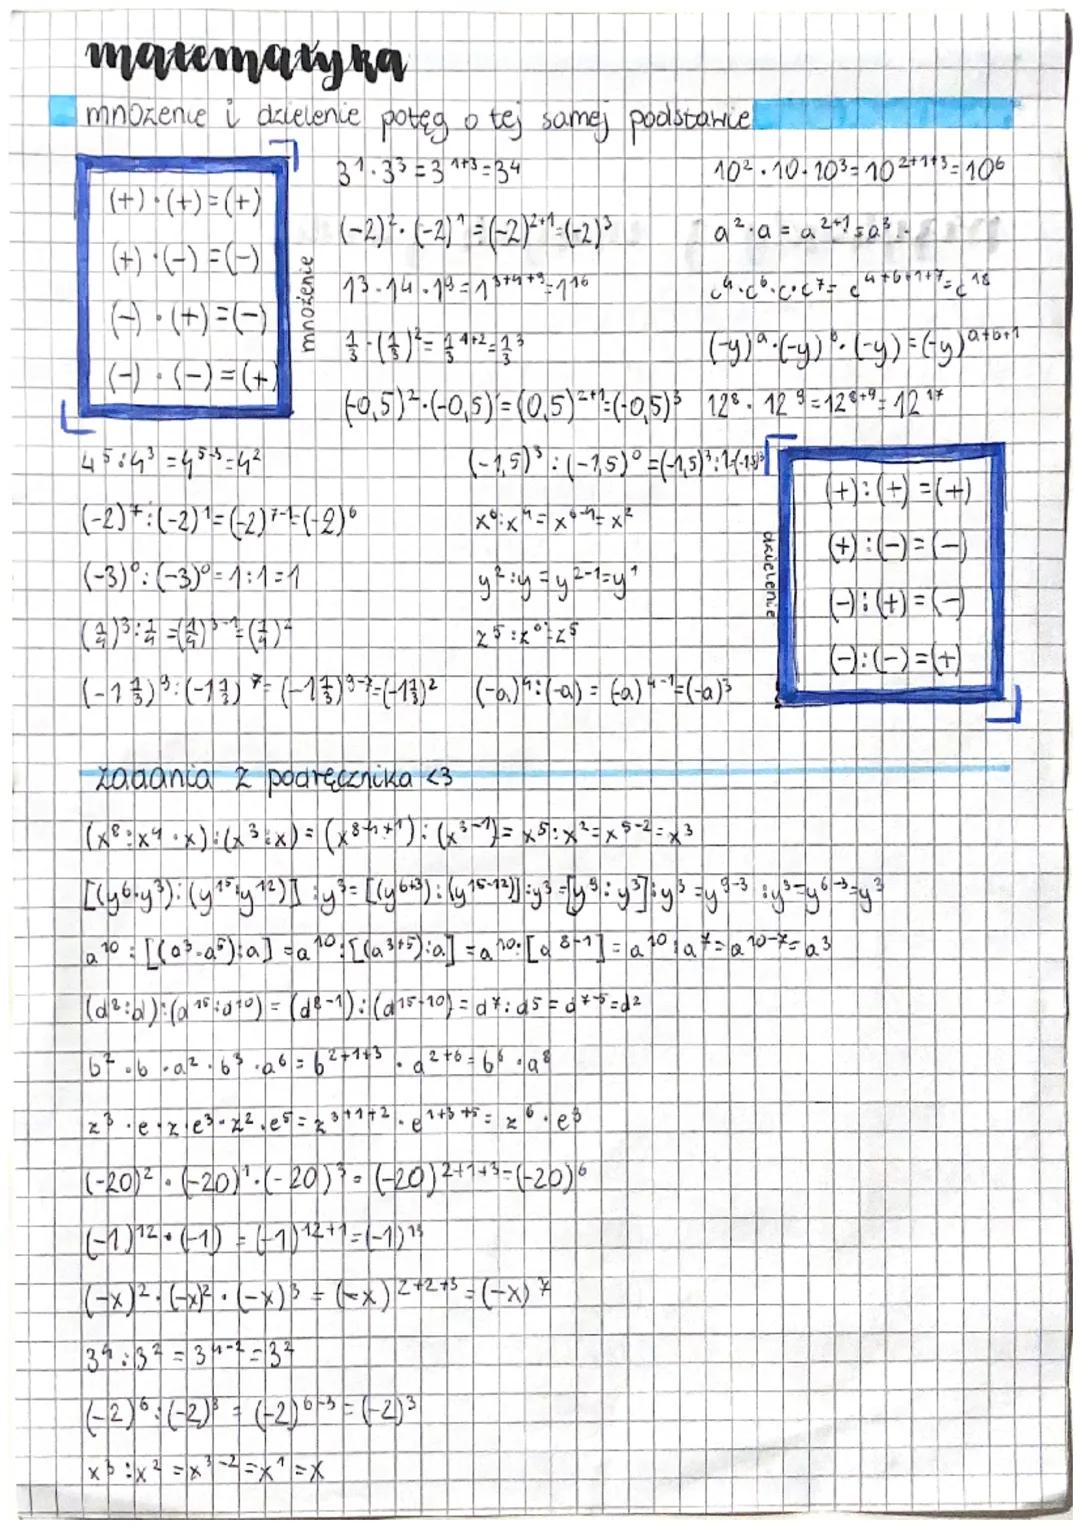 matematyka
mnożenie i dzielenie potęg o tej samej podstawie
(+)·(+)=(+)
(+)·(-)=(-)
(-)·(+)=(-)
(-)·(-)=(+)
mnożenie
3¹·3³=3¹⁺³=3⁴
(-2)²·(-2)¹=(-2)²⁺¹=(-2)³
1³·1⁴·1⁹=1³⁺⁴⁺⁹=1¹⁶
(-0,5)²·(-0,5)¹=(0,5)²⁺¹=(-0,5)³
10²·10·10³=10²⁺¹⁺³=10⁶
a²·a=a²⁺¹=a³
c⁴·c⁶·c·c⁷=c⁴⁺⁶⁺¹⁺⁷=c¹⁸
(-y)ᵃ·(-y)ᵇ·(-y)=(-y)ᵃ⁺ᵇ⁺¹
12⁸·12⁹=12⁸⁺⁹=12¹⁷
4⁵:4³=4⁵⁻³=4²
(-2)⁷:(-2)¹=(-2)⁷⁻¹=(-2)⁶
(-3)⁰:(-3)⁰=1:1=1
(1/4)³:1/4=(1/4)³⁻¹=(1/4)²
(-1 1/3)⁹:(-1 1/3)⁷=(-1 1/3)⁹⁻⁷=(-1 1/3)²
(-1,5)³:(-1,5)⁰=(-1,5)³:1=(-1,5)³
x⁶:x⁴=x⁶⁻⁴=x²
y²:y=y²⁻¹=y¹
z⁵:z⁰=z⁵
(-a)⁴:(-a)=(-a)⁴⁻¹=(-a)³
dzielenie
(+):(+)=(+)
(+):(-)=(-)
(-):(+)=(-)
(-):(-)=(+)
zadania z podręcznika <3
(x⁸:x⁴·x):(x³:x)=(x⁸⁻⁴⁺¹):(x³⁻¹)=x⁵:x²=x⁵⁻²=x³
[(y⁶·y³):(y¹⁵:y¹²)]:y³=[(y⁶⁺³):(y¹⁵⁻¹²)]:y³=[y⁹:y³]:y³=y⁹⁻³:y³=y⁶⁻³=y³
a¹⁰:[(a³·a⁵):a]=a¹⁰:[(a³⁺⁵):a]=a¹⁰:[a⁸⁻¹]=a¹⁰:a⁷=a¹⁰⁻⁷=a³
(d⁸:d):(d¹⁵:d¹⁰)=(d⁸⁻¹):(d¹⁵⁻¹⁰)=d⁷:d⁵=d⁷⁻⁵=d²
b²·b·a²·b³·a⁶=b²⁺¹⁺³·a²⁺⁶=b⁶·a⁸
z³·e·z·e³·z²·e⁵=z³⁺¹⁺²·e¹⁺³⁺⁵=z⁶·e⁹
(-20)²·(-20)¹·(-20)³=(-20)²⁺¹⁺³=(-20)⁶
(-1)¹²·(-1)=(-1)¹²⁺¹=(-1)¹³
(-x)²·(-x)²·(-x)³=(-x)²⁺²⁺³=(-x)⁷
3⁴:3²=3⁴⁻²=3²
(-2)⁶:(-2)³=(-2)⁶⁻³=(-2)³
x³:x²=x³⁻²=x¹=x